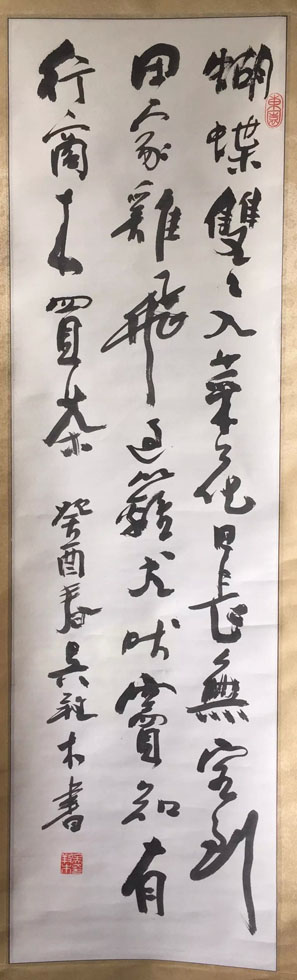 蝴蝶雙〻入菜花日長無客到
田家雞飛過籬犬吠竇知有
行商來買茶 癸酉春吳木書